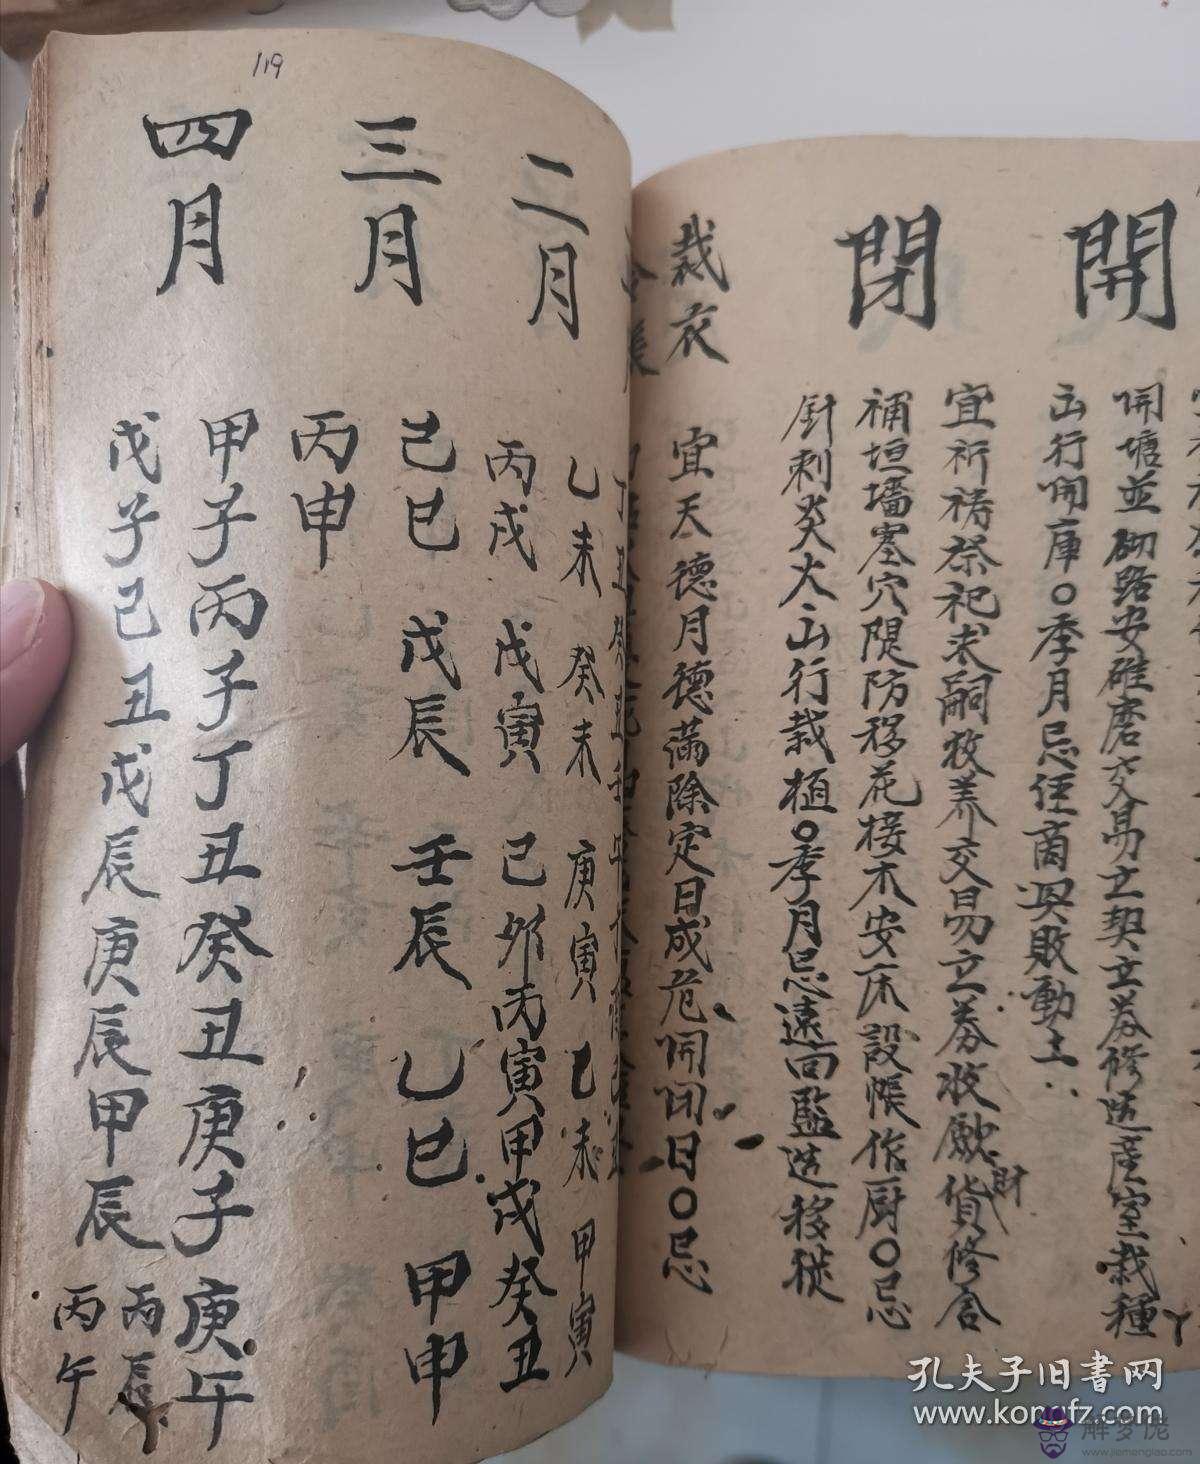 開
開塘並砌路安碓磨交易立契立券修造產室栽種
出行開庫○季月忌徃商興敗動土
閉
宜祈禱祭祀求嗣牧养交易立券收歛貨修合
財
補垣墻塞穴隄防移花接木安床設帳作厨○忌
針刺炎火出行栽植○季月忌遠回監造移徙
裁衣
宜天德月德滿除定日成危開闭日○忌
二月
乙未癸未庚寅乙未甲寅
丙戌戊寅己夘丙寅甲戌癸丑
三月
己巳戊辰壬辰乙巳甲申
丙申
四月
甲子丙子丁丑癸丑庚子庚午
戊子己丑戊辰庚辰甲辰
丙辰
丙午
119
孔夫子旧書网
www.kongfz.com
解梦佬
www.jiemenglao.com